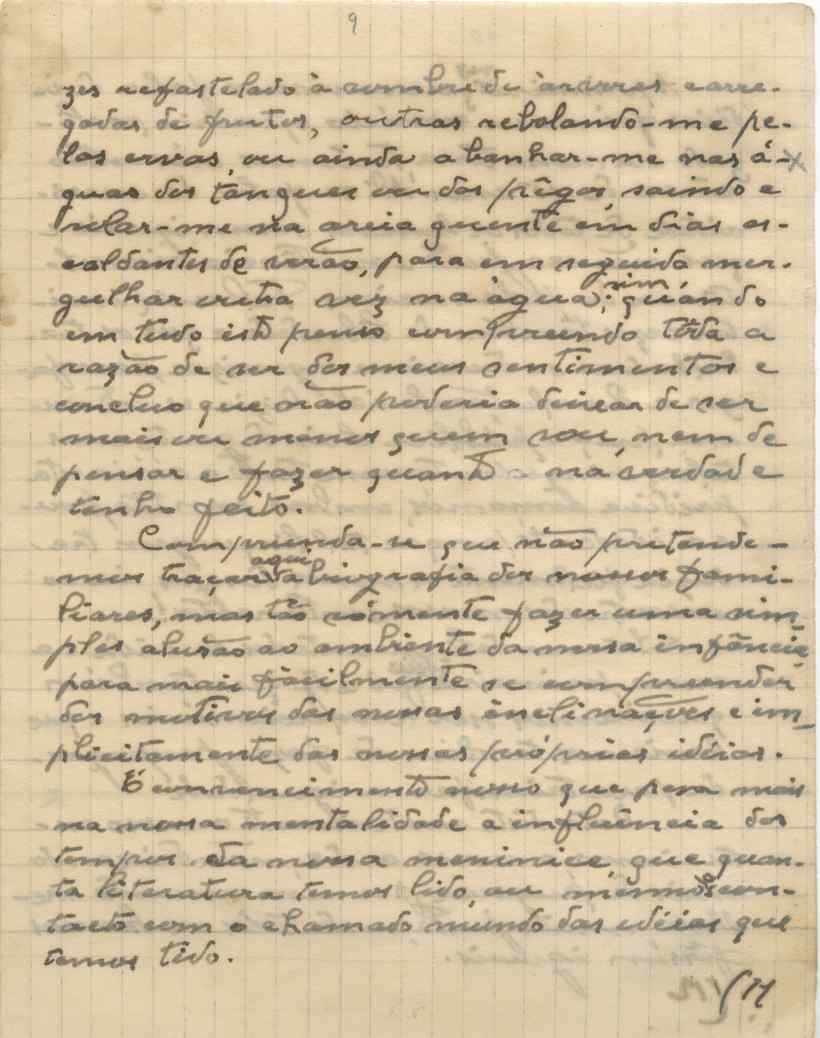 9
zes refastelado à sombra de àrvores carre-
gadas de frutos, outras rebolando-me pe-
las ervas, ou ainda a banhar-me nas á-
guas dos tanques ou dos pêgos, saindo a
rolar-me na areia quente em dias es-
caldantes de verão, para em seguida mer-
gulhar outra vez na àgua; sim, quándo
em tudo isto penso compreendo tôda a
razão de ser dos meus sentimentos e
concluo que não poderia deixar de ser
mais ou menos quem sou, nem de
pensar e fazer quanto na verdade
tenho feito.
Compreenda-se que não pretende-
mos traçar aqui a biografia dos nossos fami-
liares, mas tão sómente fazer uma sim-
ples alusão ao ambiente da nossa infância,
para mais fàcilmente se compreender
dos motivos das nossas inclinações e im-
plicitamente das nossas próprias idéias.
É convencimento nosso que pesa mais
na nossa mentalidade a influência dos
tempos da nossa meninice, que quan-
ta literatura temos lido, ou mesmo o con-
tacto com o chamado mundo das idéias que
temos tido.